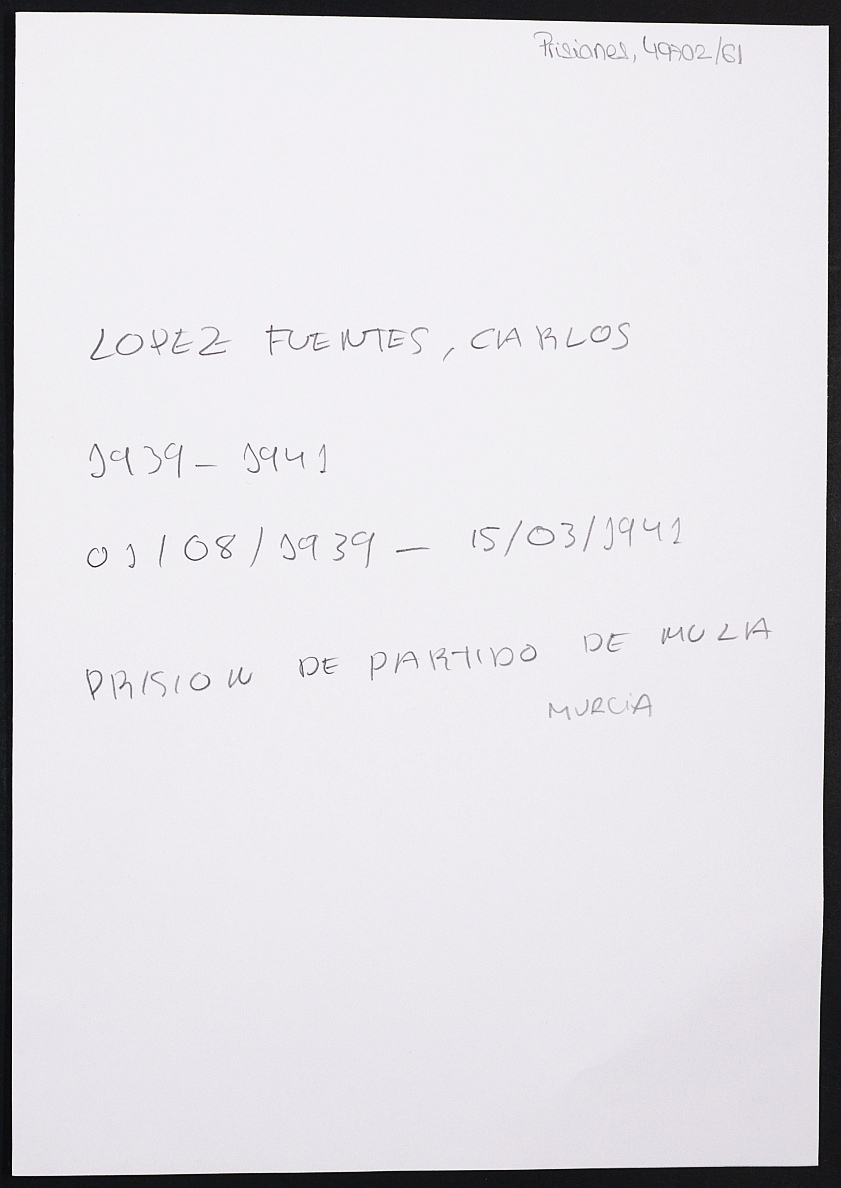 Prisiones, 49702/61
LOPEZ FUENTES, CARLOS
1939 - 1941
01/08/1939 - 15/03/1941
PRISION DE PARTIDO DE MULA
MURCIA